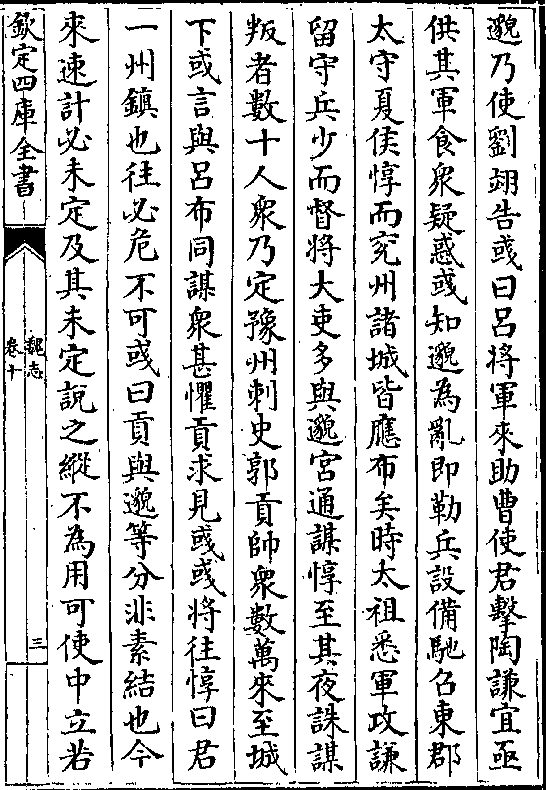 邈乃使劉翊告彧曰呂將軍來助曹使君擊陶謙宜亟
供其軍食衆疑惑彧知邈為亂即勒兵設備馳召東郡
太守夏侯惇而兖州諸城皆應布矣時太祖悉軍攻謙
留守兵少而督將大吏多與邈宮通謀惇至其夜誅謀
叛者數十人衆乃定豫州刺史郭貢帥衆數萬來至城
下或言與呂布同謀衆甚懼貢求見彧彧將往惇曰君
一州鎮也往必危不可彧曰貢與邈等分非素結也今
來速計必未定及其未定說之縱不為用可使中立若
欽定四庫全書
魏志
卷十
三